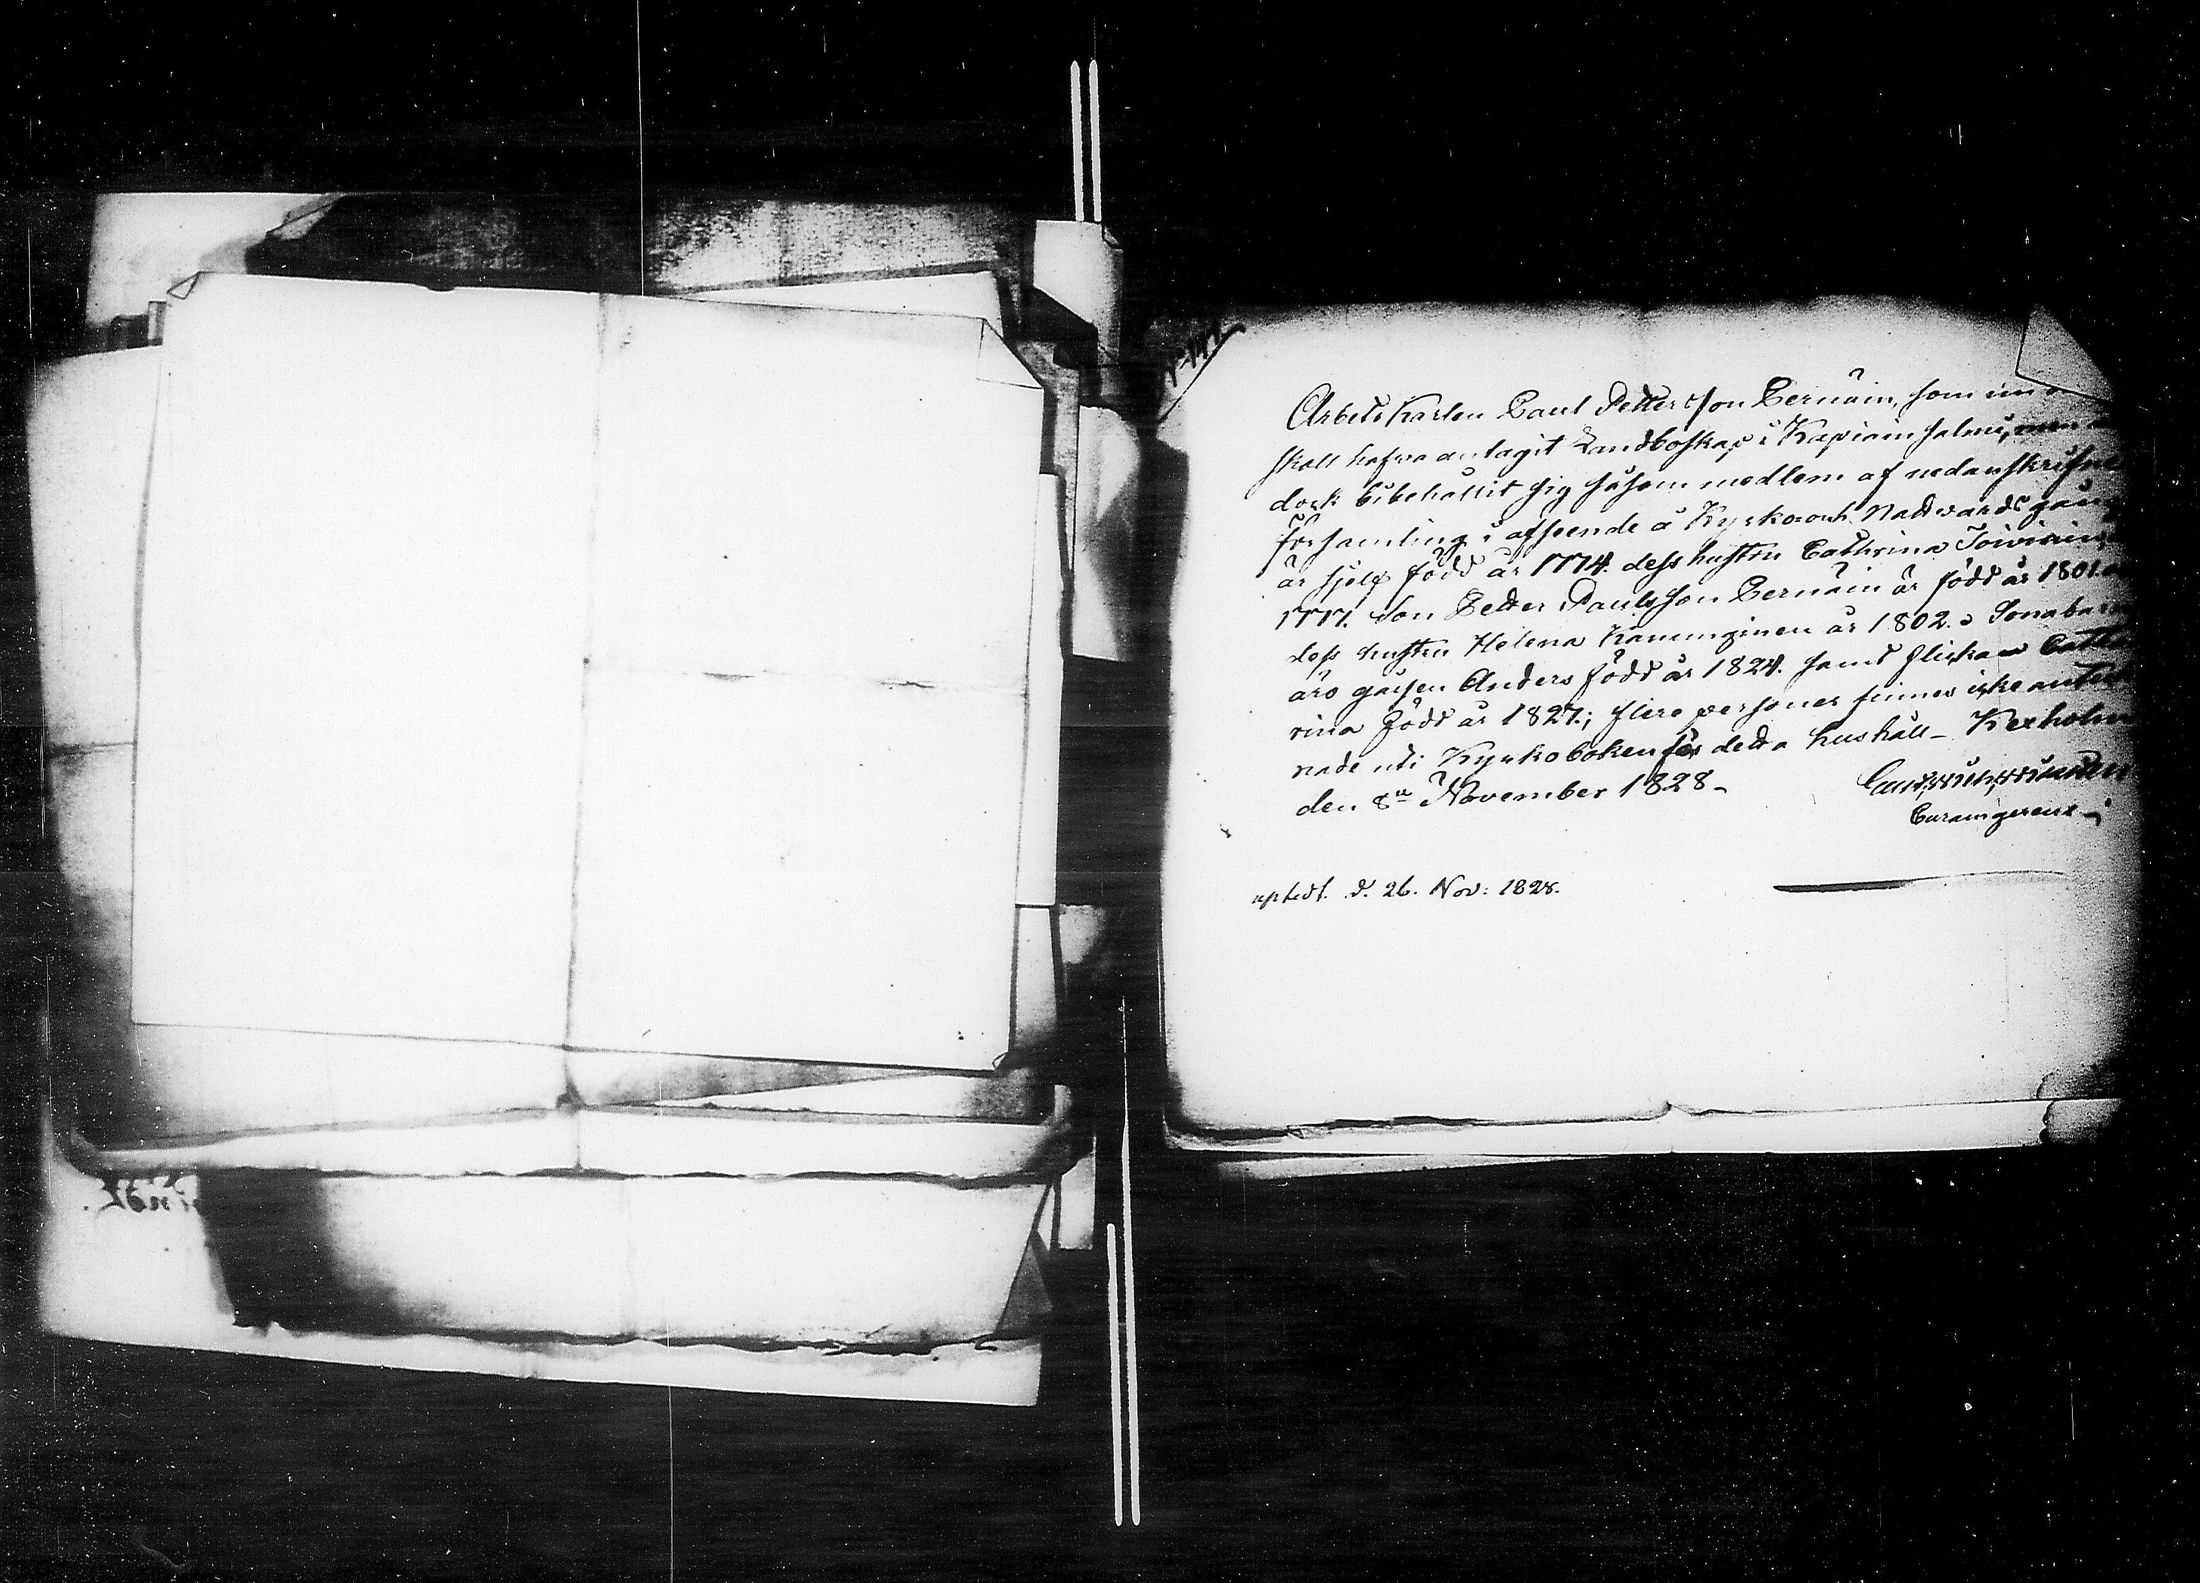 Arbets Karlen Paul Petterson Pernäin, som
skall hafva antagit Landboskap i Kapiainsalmi, men
dock bibehållit sig såsom medlem af nedanskrifne
Församling i afseende å Kyrko och Nattvardsgång
är sjelf född år 1774. dess hustru Cathrina Toivin
1777. Son Petter Paulsson Pernäin är född år 1801.
dess hustru Helena Kämmginen år 1802. Sonabarn
äro gossen Anders född år 1824. samt flickan Cath
rina född år 1827.; flere personer finnes icke anteck
nade uti Kyrkoboken för detta hushåll – Kexholm
den 8de November 1828 –
Curam gerens
uptedt. d. 26. Nov: 1828.